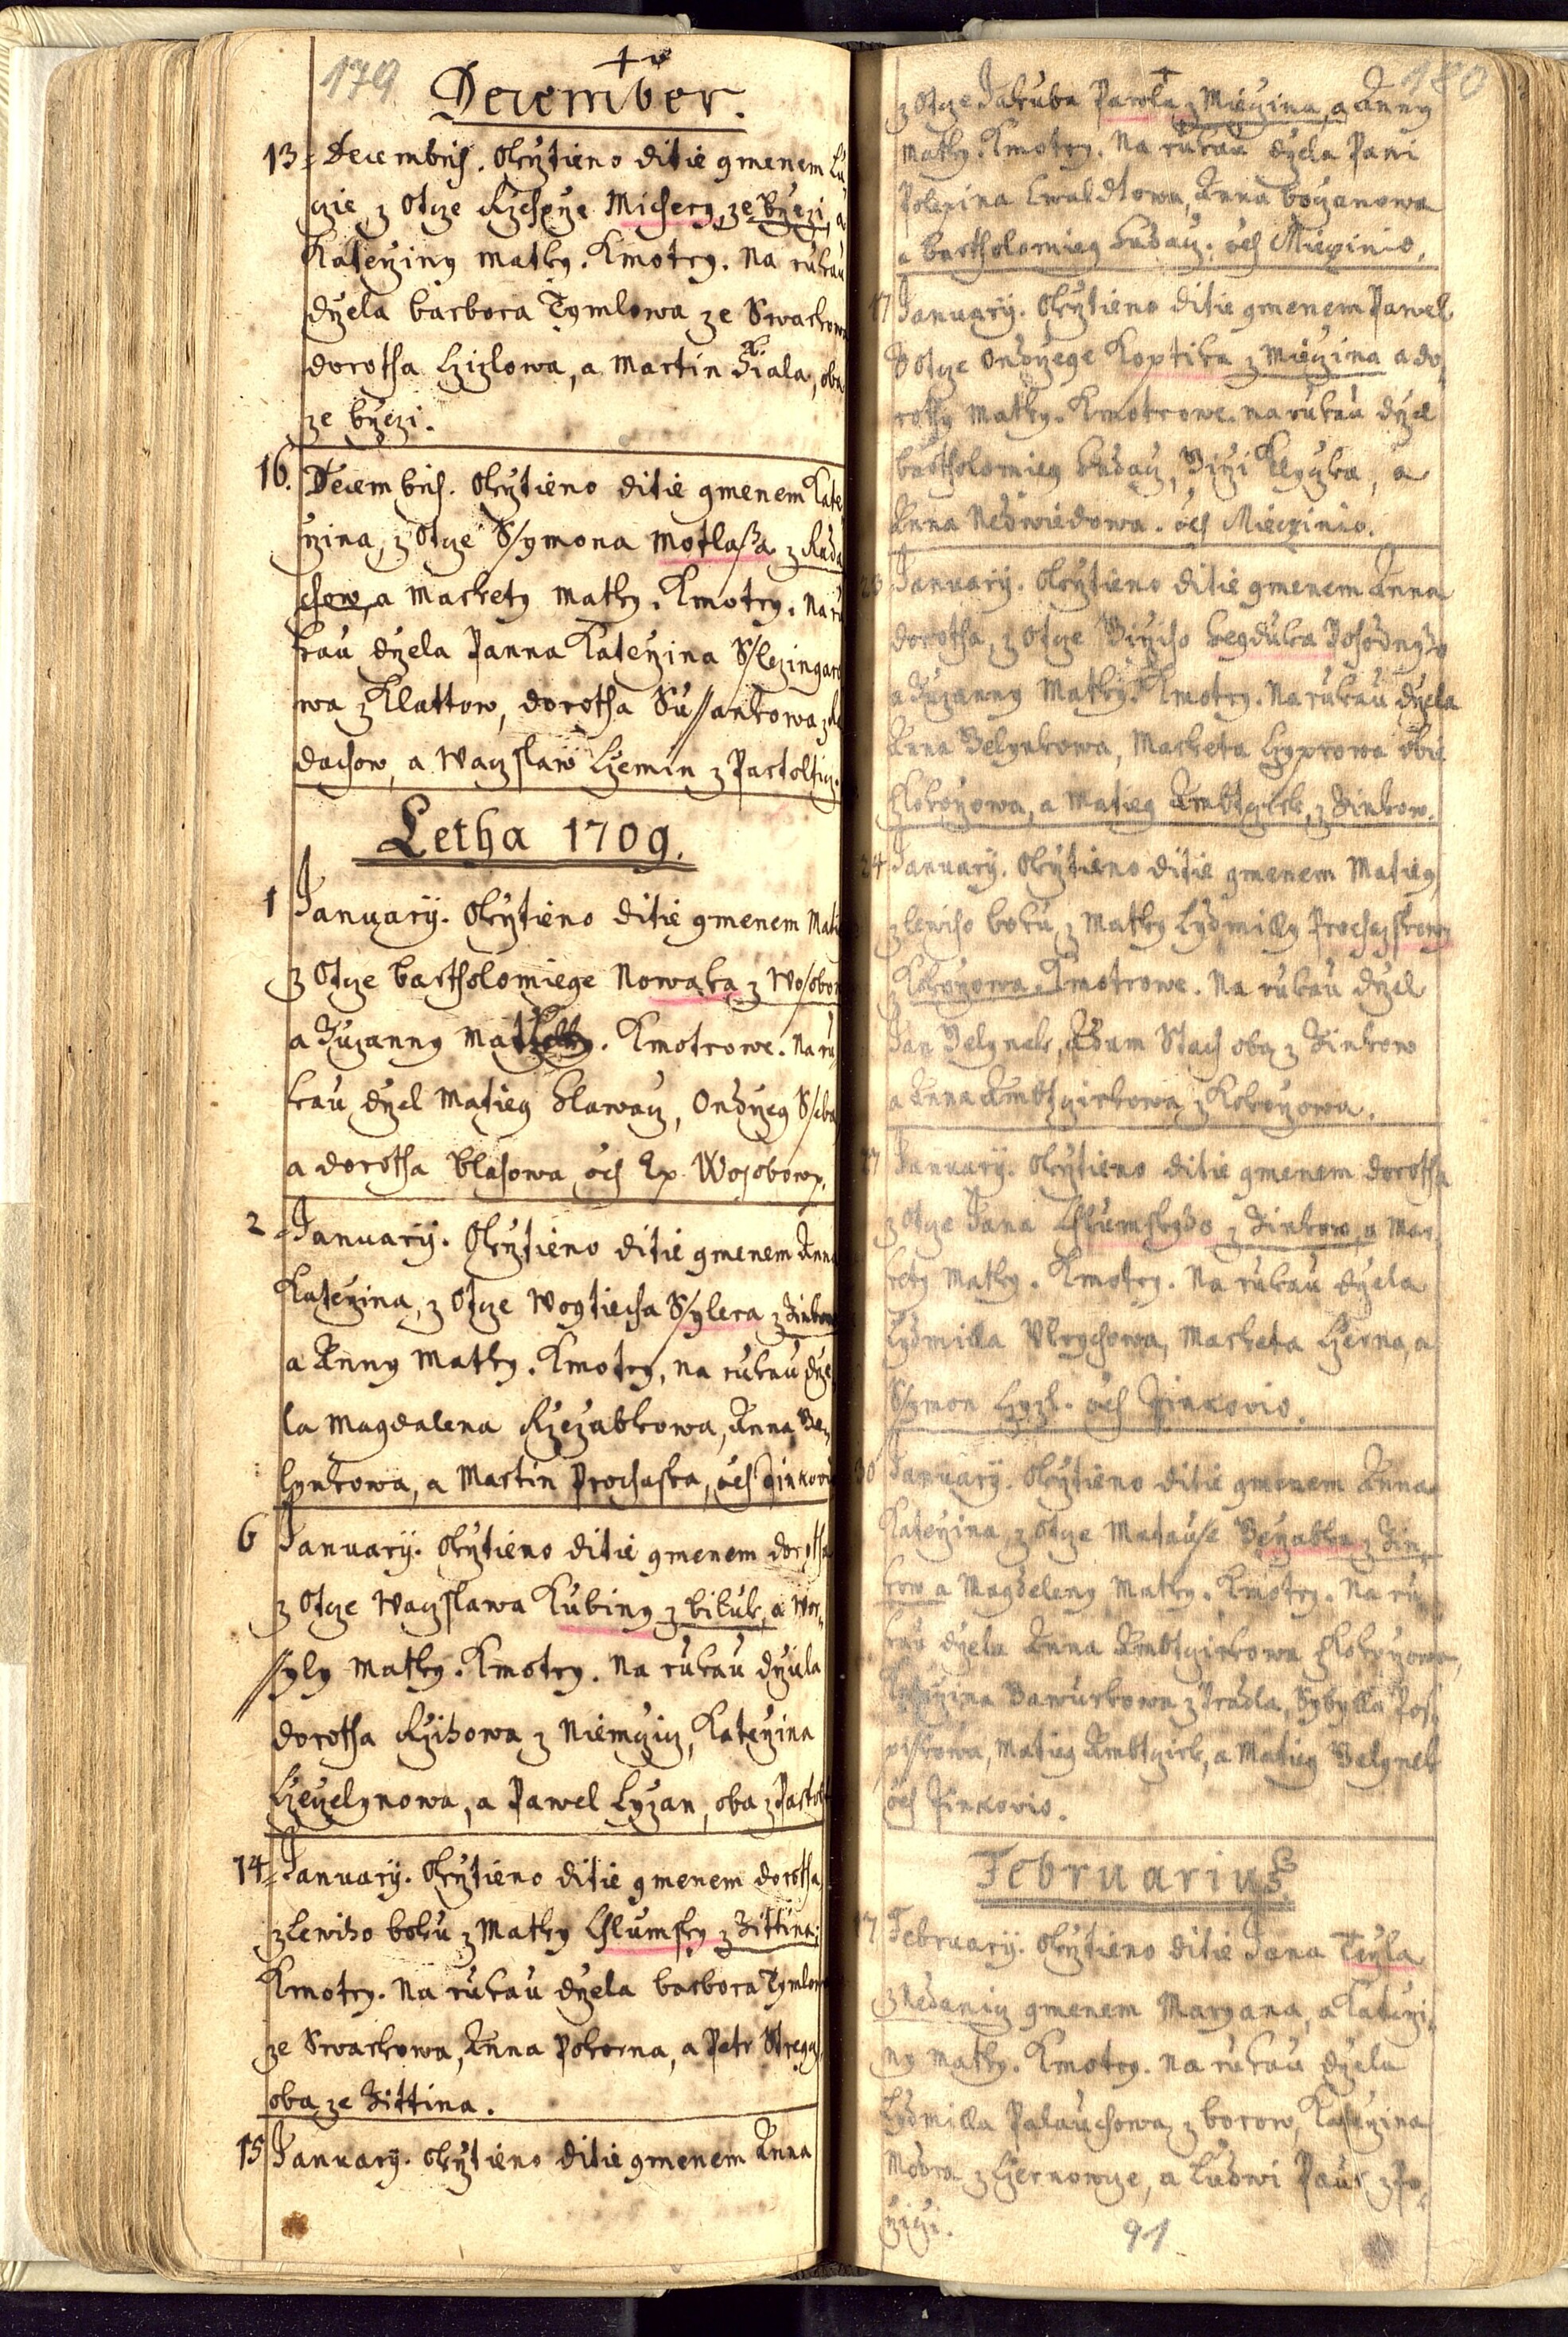 179
December.
13 Decembris. Okrztieno ditie gmenem Lu
czie, z Otcze Rzehorze Michery, ze Brzezi, a
Katerziny matky. Kmotry. Na rukau
drzela barbora Tymlowa ze Swarkowa
dorotha Cziziowa, a Martin Fiala, oba
ze brzezi.
16. Decembris. Okrztieno ditie gmenem Kate
rzina, z Otcze Ssymona Motlassa z Kuda
chow, a Markety Matky. Kmotry. Na ru
kau drzela Panna Katerzina
wa z Klattow, dorotha Sussankowa z Ku
dachow, a Waczslaw Czemin z Partolticz.
Letha 1709.
1 January. Okrztieno ditie gmenem Mati
z Otcze bartholomiege Nowaka z Wosobow
a Zuzanny Matky. Kmotrowe. Na ru
kau drzel Matieg Hlawacz, Ondrzeg
a dorotha Blahowa, o͞es Ex Wosobow.
2 January. Okrztieno ditie gmenem Anna
Katerzina, z Otcze Wogtiecha Ssylera z Zinkow
a Anny Matky. Kmotry, na rukau drze
la Magdalena Rzezabkowa, Anna Be
lynkowa, a Martin Prochaska, o͞es Zinkovio
6 January. Okrztieno ditie gmenem dorotha
z Otcze Waczslawa Kubiny z bikuk, a Wor
ssyly Matky. Kmotry. Na rukau drzela
dorotha Rzihowa z Niemczicz, Katerzina
Czeczelynowa, a Pawel Cyzan, oba z Partolt
14 January. Okrztieno ditie gmenem dorotha
z lewiho boku z Matky Chlumsky z Zittina;
Kmotry. Na rukau drzela barbora Tymlowa
ze Swarkowa, Anna Pokorna, a Petr
oba ze Zittina.
15 January. Okrztieno ditie gmenem Anna
180
z Otcze Jakuba Pawla z Mieczina, a Anny
Matky. Kmotry. Na rukau drzela Pani
Polexina Ewaldtowa, Anna boyanowa
a bartholomieg Hudacz. o͞es Mieczinio.
17 January. Okrztieno ditie gmenem Pawel
z Otcze Ondrzege Koptika z Mieczina a do
rothy Matky. Kmotrowe. Na rukau drzel
bartholomieg Hudacz, Girzi a
Anna Nedwiedowa. o͞es Mieczinio.
January. Okrztieno ditie gmenem Anna
dorotha, z Otcze Girziho Hegduka Pohodnyho
a Zuzanny Matky. Kmotry. Na rukau drzela
Anna Belynkowa, Marketa obie
z Kokorzowa, a Matieg z Zinkow.
24 January. Okrztieno ditie gmenem Matieg
z lewiho boku, z Matky Lydmilly Prochazkowy
z Kokorzowa. Kmotrowe. Na rukau drzel
Jan Belynek, Adam Stach oba z Zinkow
a Anna z Kokorzowa.
27 January. Okrztieno ditie gmenem dorotha
z Otcze Jana Chlumskyho z Zinkow, a Mar
kety Matky. Kmotry. Na rukau drzela
Lydmilla Ulrychowa, Marketa Czerna, a
Ssymon o͞es Zinkovio.
30 January. Okrztieno ditie gmenem Anna
Katerzina, z Otcze Matausse Rzerzabka z Zin
kow a Magdaleny Matky. Kmotry. Na ru
kau drzela Anna z Kokorzowa,
Katerzina z Pradla, Sybylla Pos
pisskowa, Matieg a Matieg Belynek
o͞es Zinkovio.
Februarius
17 February. Okrztieno ditie Jana Teyla
z Nedanicz gmenem Maryana, a Katerzi
ny Matky. Kmotry. Na rukau drzela
Lydmilla Palauchowa z borow, Katerzina
Modra z Czernowcze, a Ludwi Paur z Po
rziczi.
91